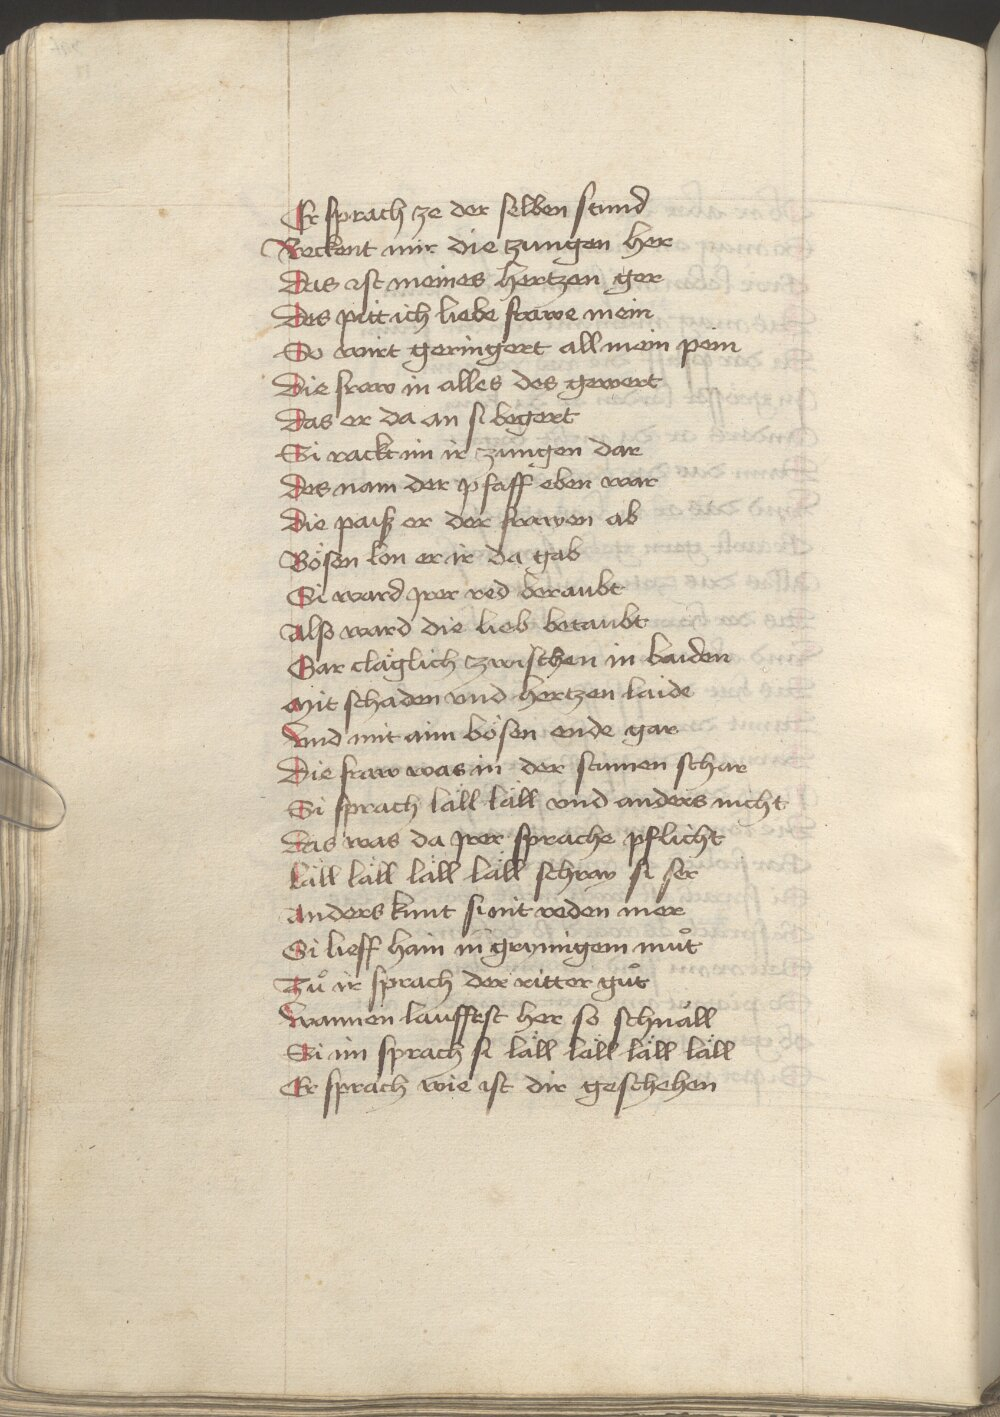 Er sprach ze der selben stund
Reckent mir die zungen her
Das ist meines hertzen ger
Des pitt ich liebe frawe mein
So wirt geringert all mein pein
Die fraw in alles des gewert
Das er da an si begert
Si rackt im ir zungen dar
Des nam der pfaff eben war
Die paiß er der frawen ab
Bösen lon er ir da gab
Si ward jrer red beraubt
Also ward die lieb betaubt
Gar cläglich zwischen in baiden
Mit schaden vnd hertzen laide
Vnd mit aim bösen ende gar
Die fraw was in der stumen schar
Si sprach läll läll vnd anders nicht
Das was da jrer sprache pflicht
Läll läll läll läll schray si ser
Anders kunt si nit reden mer
Si lieff haim in grymigem můt
Zů ir sprach der ritter gůt
Wannen lauffest her so schnäll
Si im sprach si läll läll läll läll
Er sprach wie ist dir geschehen